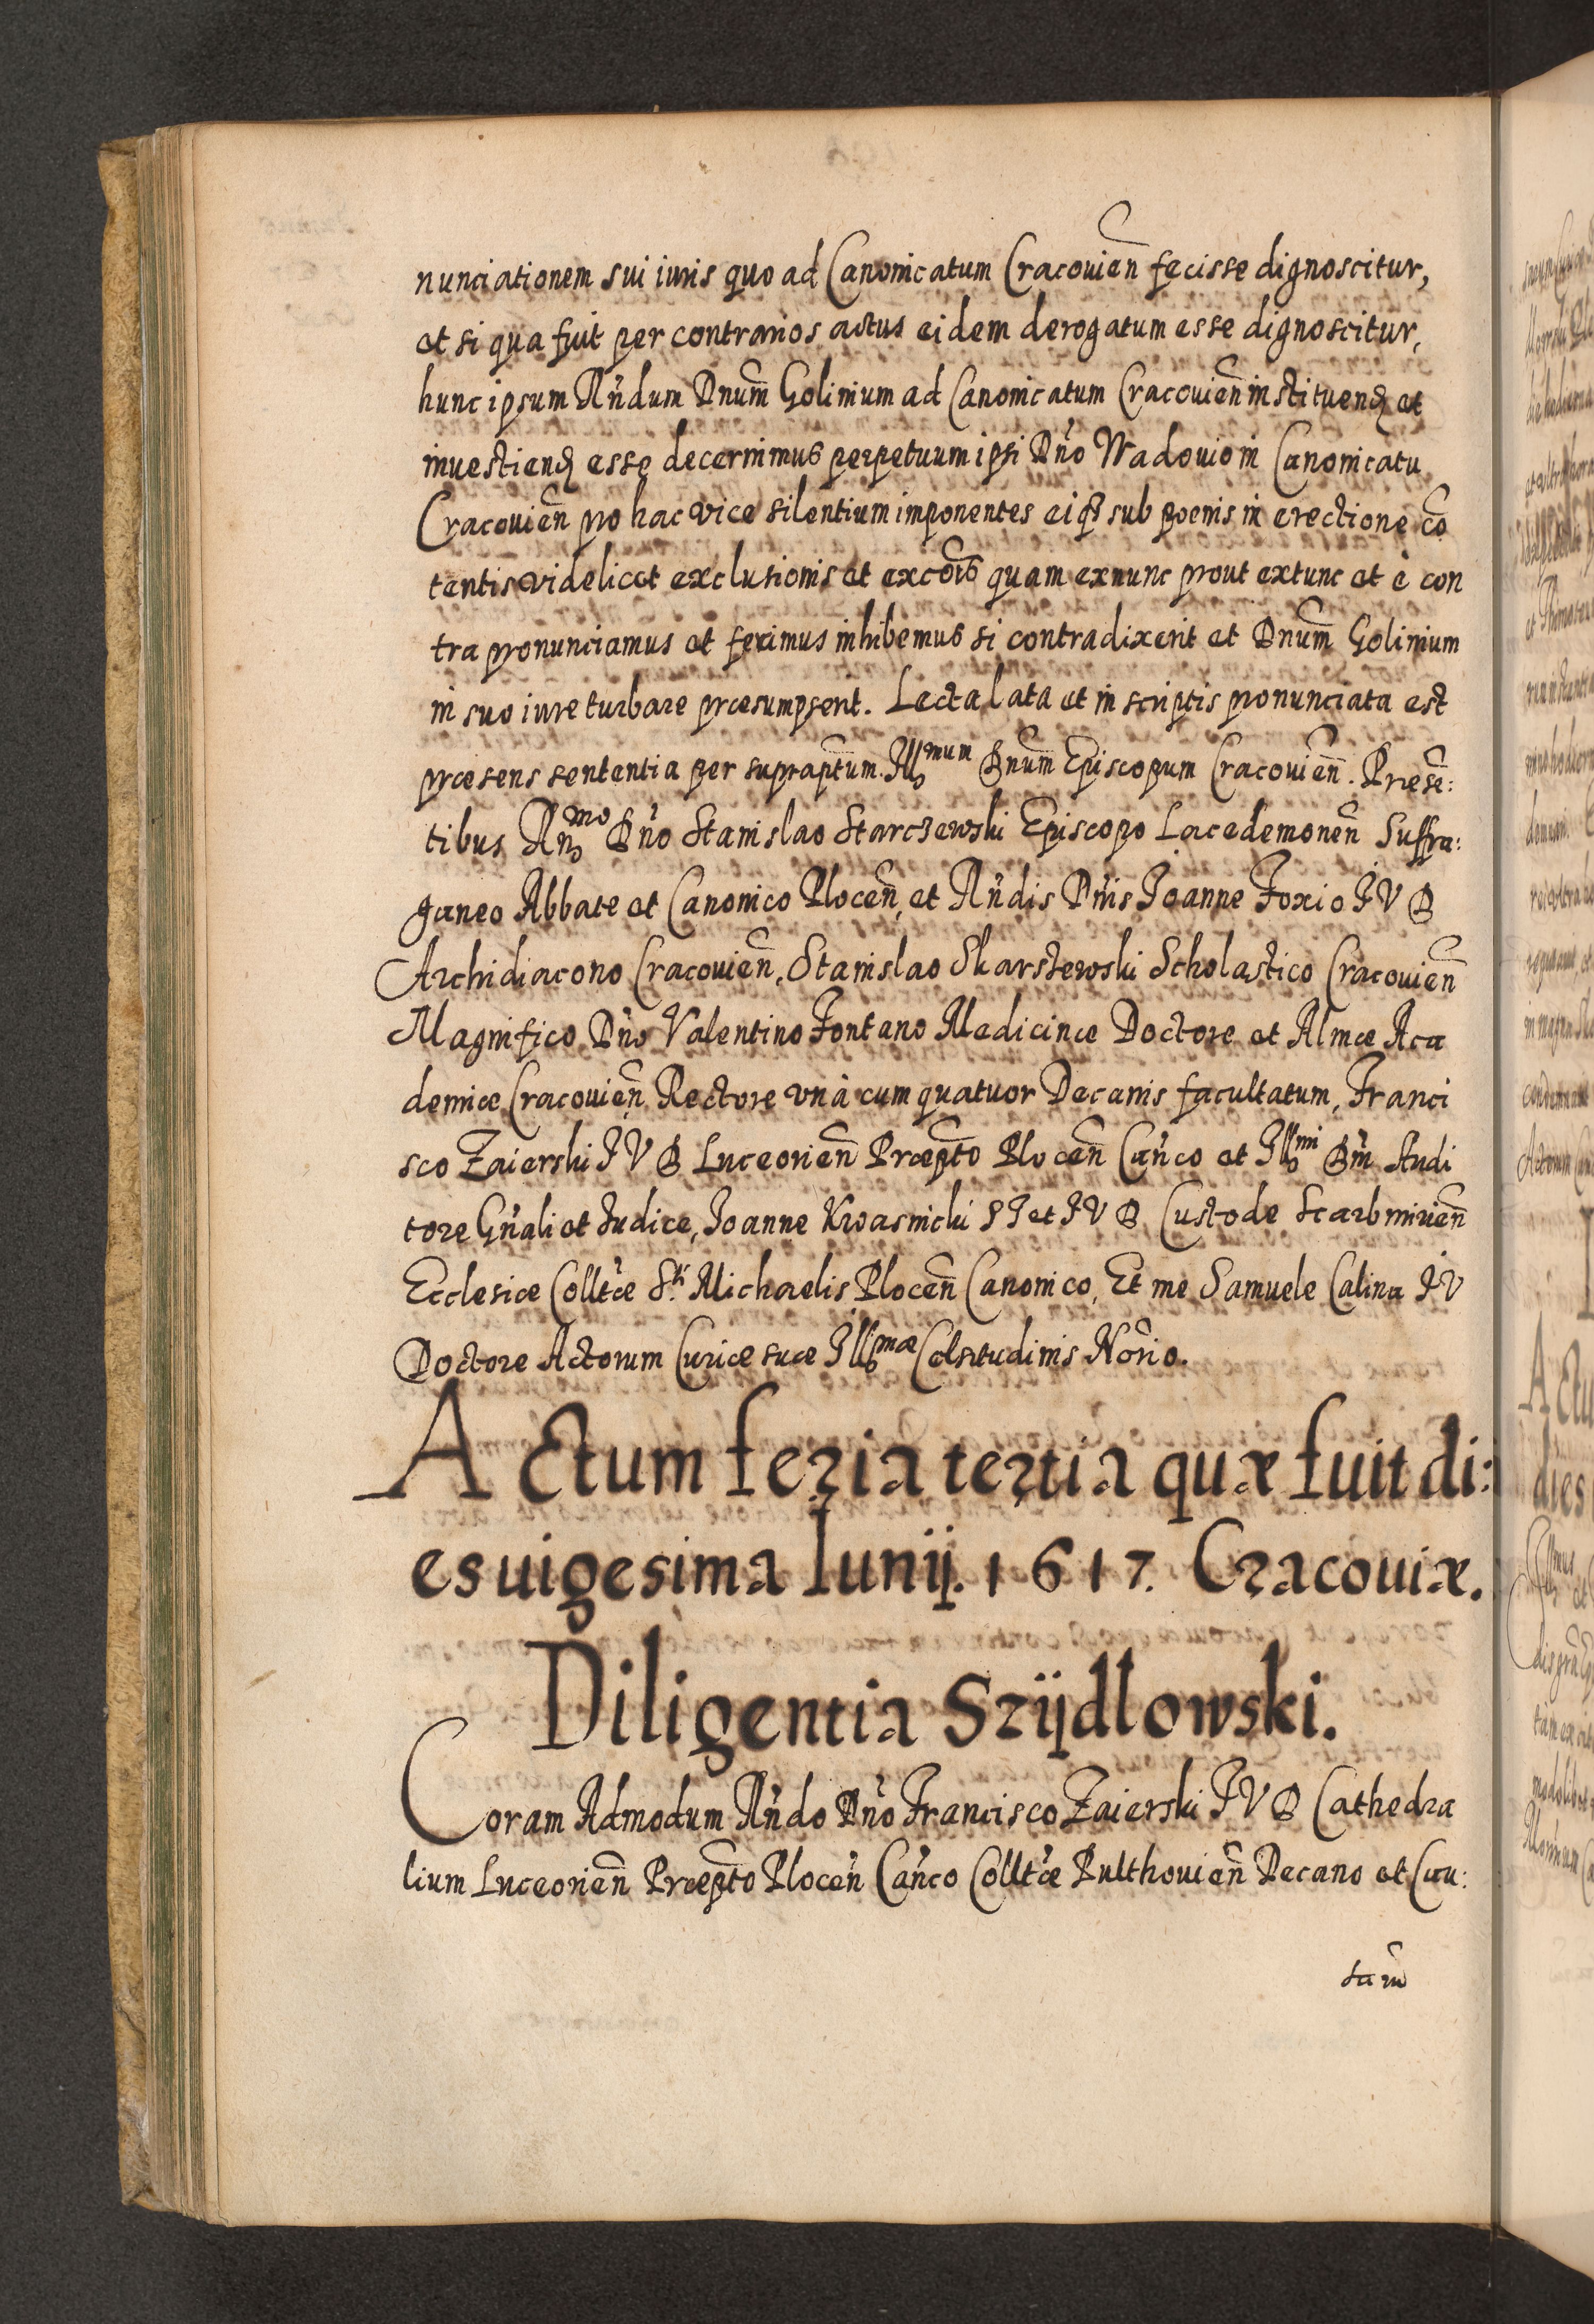 nunciationem sui iuris quo ad Canonicatum Cracouien̄ fecisse dignoscitur,
et si qua fuit per contrarios actus eidem derogatum esse dignoscitur,
hunc ipsum Rn̄dum Dnum̄ Golinium ad Canonicatum Cracouien̄ instituend et
inuestiend esse decernimus perpetuum ipsi Dn̄o Wadouio in Canonicatu
Cracouien̄ pro hac vice silentium imponentes eiq3 sub poenis in erectione cō
tentis videlicet exclusionis et excōis quam exnunc prout extunc et è con
tra pronunciamus et ferimus inhibemus si contradixerit et Dnum̄ Golinium
in suo iure turbare præsumpserit. Lecta lata et in scriptis pronunciata est
præsens sententia per suprapt̄um. Illmum Dnum̄ Episcopum Cracouien̄. Præsē:
tibus Rnmo Dn̄o Stanislao Starczewski Episcopo Lacedemonen̄ Suffra:
ganeo Abbate et Canonico Plocen̄, et Rn̄dis Dn̄is Joanne Foxio J V D
Archidiacono Cracouien̄, Stanislao Skarszewski Scholastico Cracouien̄
Magnifico Dn̄o Valentino Fontano Medicinæ Doctore et Almæ Aca
demiæ Cracouien̄ Rectore vnà cum quatuor Decanis facultatum, Franci
sco Zaierski J V D Luceorien̄ Præpt̄o Plocen̄ Can̄co et Illmi Dn̄i Audi
tore Gn̄ali et Iudice, Joanne Kwasnicki S T et J V D Custode Scarbmirien̄
Ecclesiæ Collt̄æ S.ti Michaelis Plocen̄ Canonico, Et me Samuele Calina J V
Doctore Actorum Curiæ suæ Illmæ Celsitudinis Nōrio.
Actum feria tertia quæ fuit di:
es uigesima Iunij. 1617. Cracouiæ.
Diligentia Szijdlowski.
Coram Admodum Rn̄do Dn̄o Francisco Zaierski J V D Cathedra
lium Luceorien̄ Præpt̄o Plocen̄ Can̄co Collt̄æ Pulthouien̄ Decano et Cau:
sarū